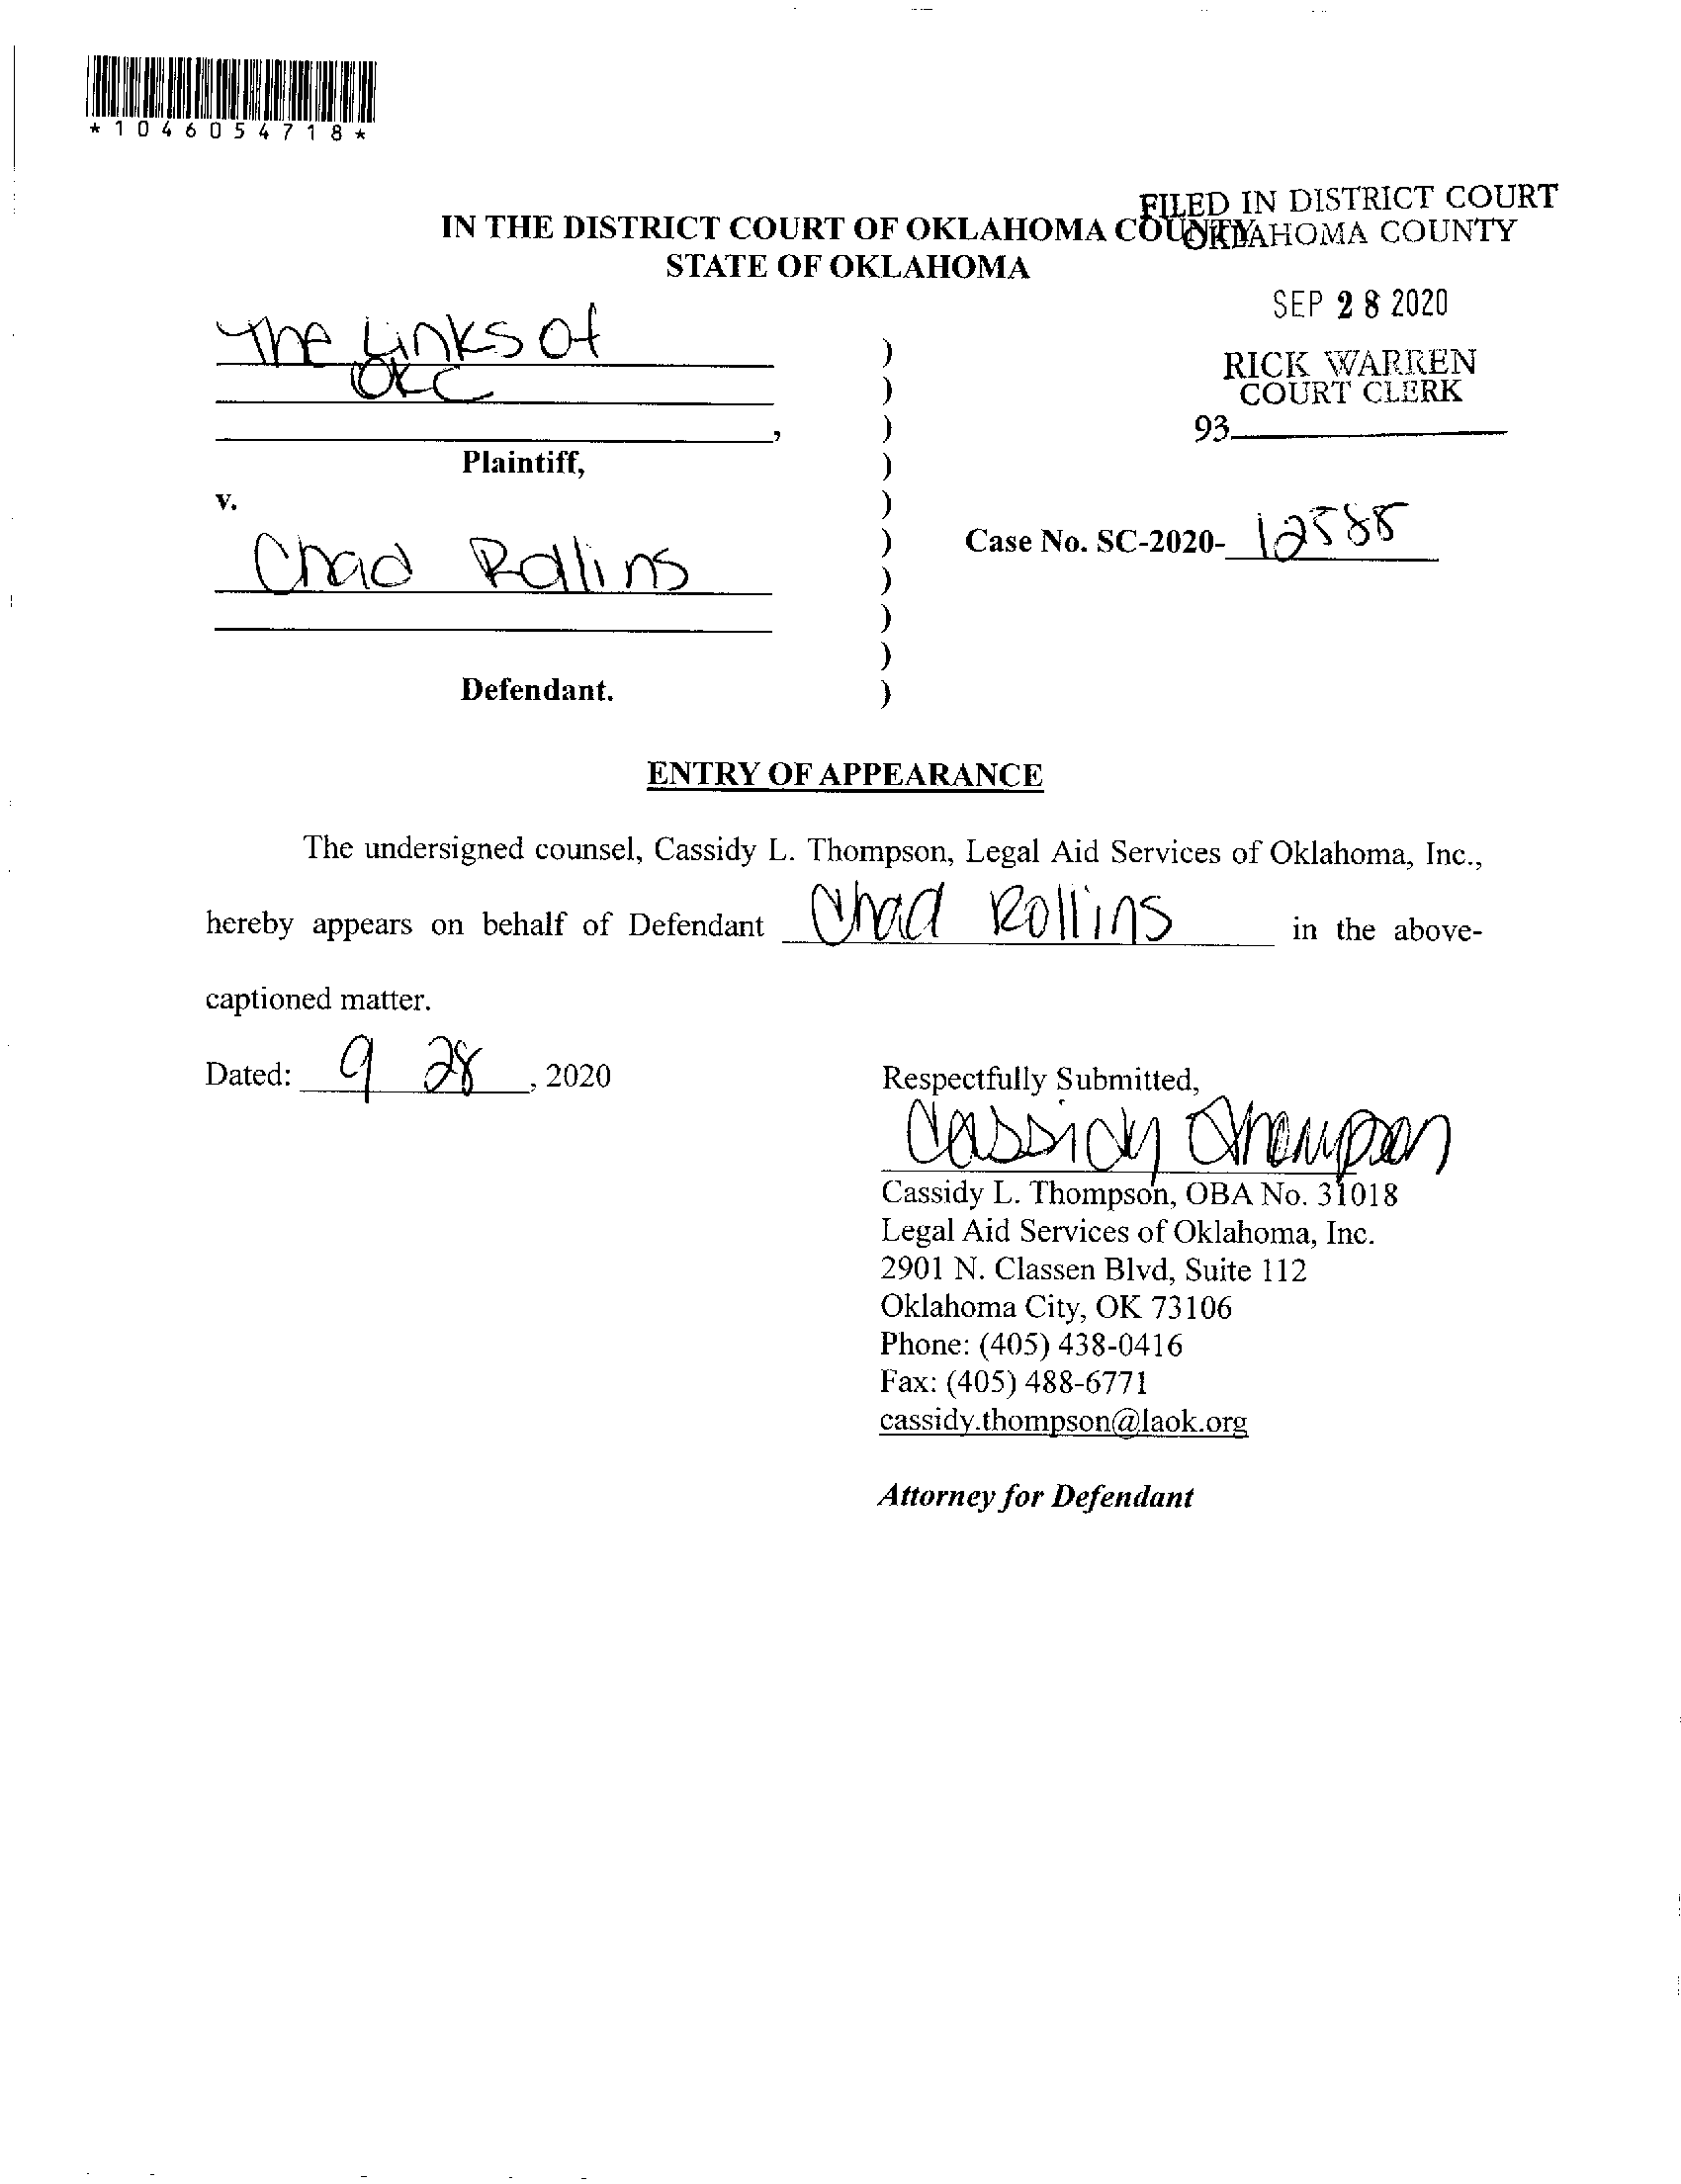 *1046054718*
FILED IN DISTRICT COURT
OKLAHOMA COUNTY
IN THE DISTRICT COURT OF OKLAHOMA COUNTY
STATE OF OKLAHOMA
SEP 28 2020
RICK WARREN
COURT CLERK
93
The Links of
OKC
,
Plaintiff,
v.
Case No. SC-2020- 12588
Chad Rollins
Defendant.
)
)
)
)
)
)
)
)
)
)
ENTRY OF APPEARANCE
The undersigned counsel, Cassidy L. Thompson, Legal Aid Services of Oklahoma, Inc.,
hereby appears on behalf of Defendant Chad Rollins in the above-
captioned matter.
Dated: 9 28, 2020
Respectfully Submitted,
Cassidy Thompson
Cassidy L. Thompson, OBA No. 31018
Legal Aid Services of Oklahoma, Inc.
2901 N. Classen Blvd, Suite 112
Oklahoma City, OK 73106
Phone: (405) 438-0416
Fax: (405) 488-6771
cassidy.thompson@laok.org
Attorney for Defendant